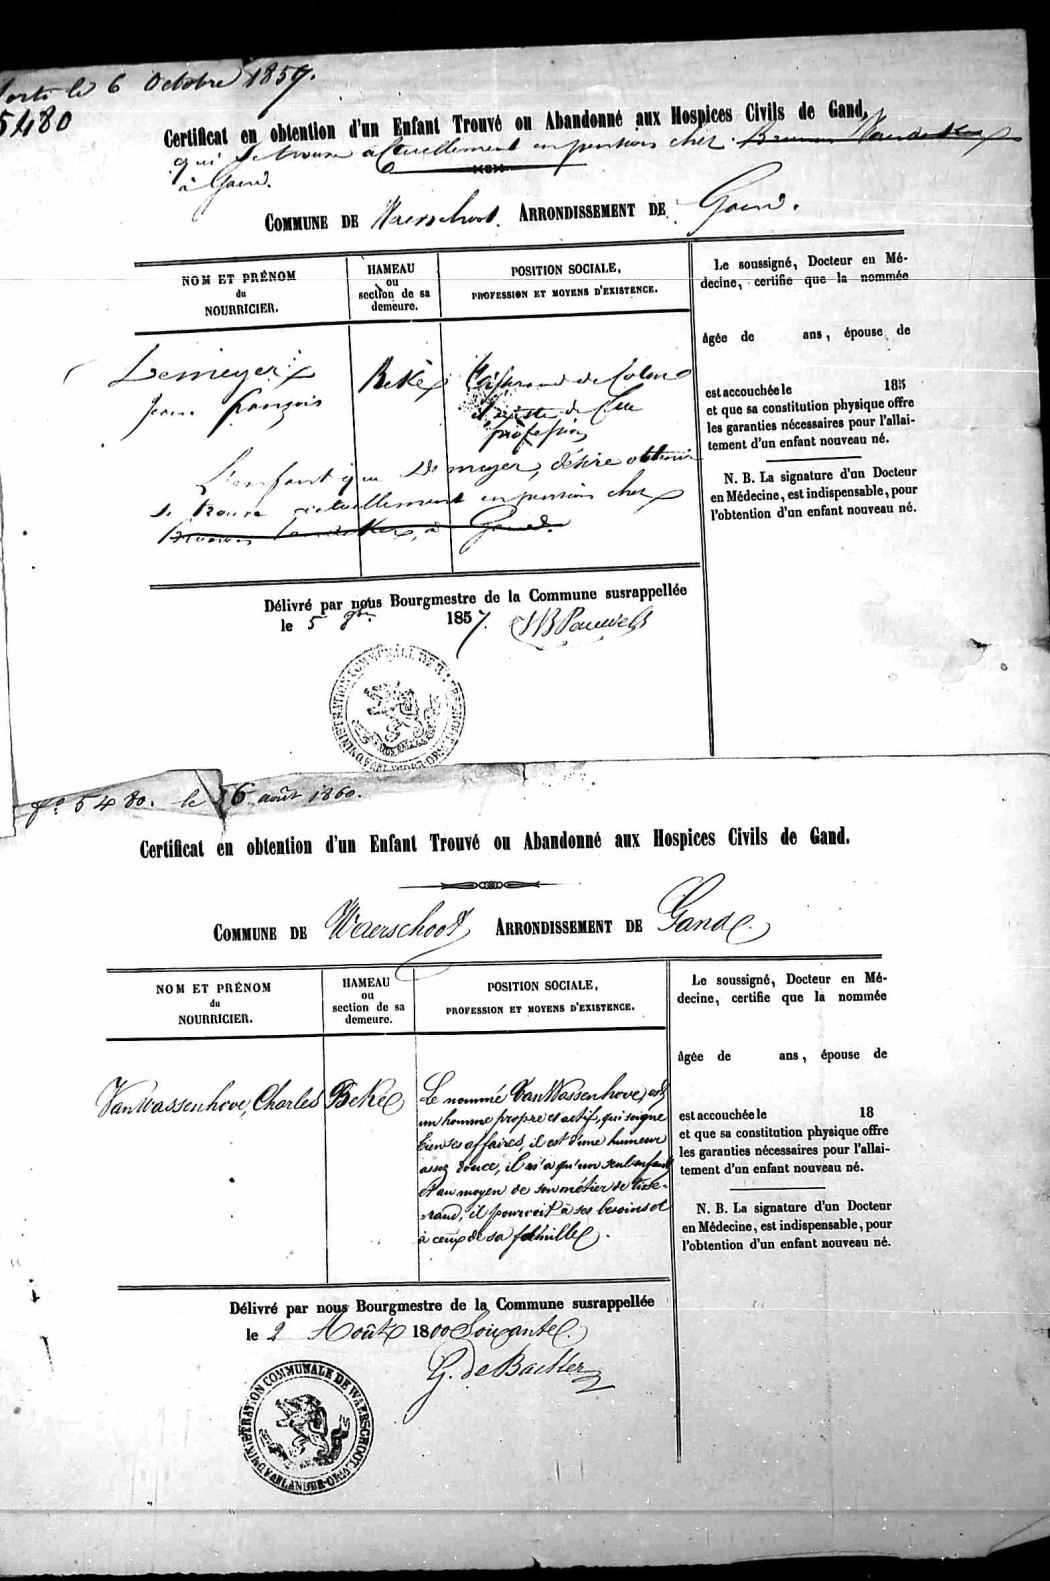 Sorti le 6 Octobre 1857.
5480
Certificat en obtention d'un Enfant Trouvé ou Abandonné aux Hospices Civils de Gand,
qui se trouve actuellement en pension chez
à Gand.
COMMUNE DE Waerschoot. ARRONDISSEMENT DE Gand.
NOM ET PRÉNOM
du
NOURRICIER.
HAMEAU
ou
section de sa
demeure.
POSITION SOCIALE,
PROFESSION ET MOYENS D'EXISTENCE.
Le soussigné, Docteur en Mé-
decine, certifie que la nommée
âgée de ans, épouse de
est accouchée le 185
et que sa constitution physique offre
les garanties nécessaires pour l'allai-
tement d'un enfant nouveau né.
N. B. La signature d'un Docteur
en Médecine, est indispensable, pour
l'obtention d'un enfant nouveau né.
Demeyer
Jean François
Beke
Tisserand de Coton
existe de cette
profession
L'enfant que Demeyer, désire obtenir
se trouve actuellement en pension chez
à Gand.
Délivré par nous Bourgmestre de la Commune susrappellée
le 5 1857. JB Pauwels
No 5480. le 6 août 1860.
Certificat en obtention d'un Enfant Trouvé ou Abandonné aux Hospices Civils de Gand.
COMMUNE DE Waerschoot ARRONDISSEMENT DE Gand.
NOM ET PRÉNOM
du
NOURRICIER.
HAMEAU
ou
section de sa
demeure.
POSITION SOCIALE,
PROFESSION ET MOYENS D'EXISTENCE.
Le soussigné, Docteur en Mé-
decine, certifie que la nommée
âgée de ans, épouse de
est accouchée le 18
et que sa constitution physique offre
les garanties nécessaires pour l'allai-
tement d'un enfant nouveau né.
N. B. La signature d'un Docteur
en Médecine, est indispensable, pour
l'obtention d'un enfant nouveau né.
Van Wassenhove, Charles
Beke
Le nommé Van Wassenhove, est
un homme propre et actif, qui soigne
bien ses affaires, il est d'une humeur
assez douce, il n'a qu'un seul enfant
et au moyen de son métier de tisse-
rand, il pourvoit à ses besoins et
à ceux de sa famille.
Délivré par nous Bourgmestre de la Commune susrappellée
le 2 Août 1800 Soixante.
G. de Backer
ADMINISTRATION COMMUNALE DE WAERSCHOOT